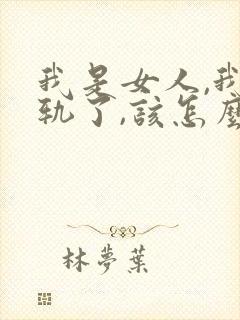 我是女人,我
軌了,該怎麼
林夢葉